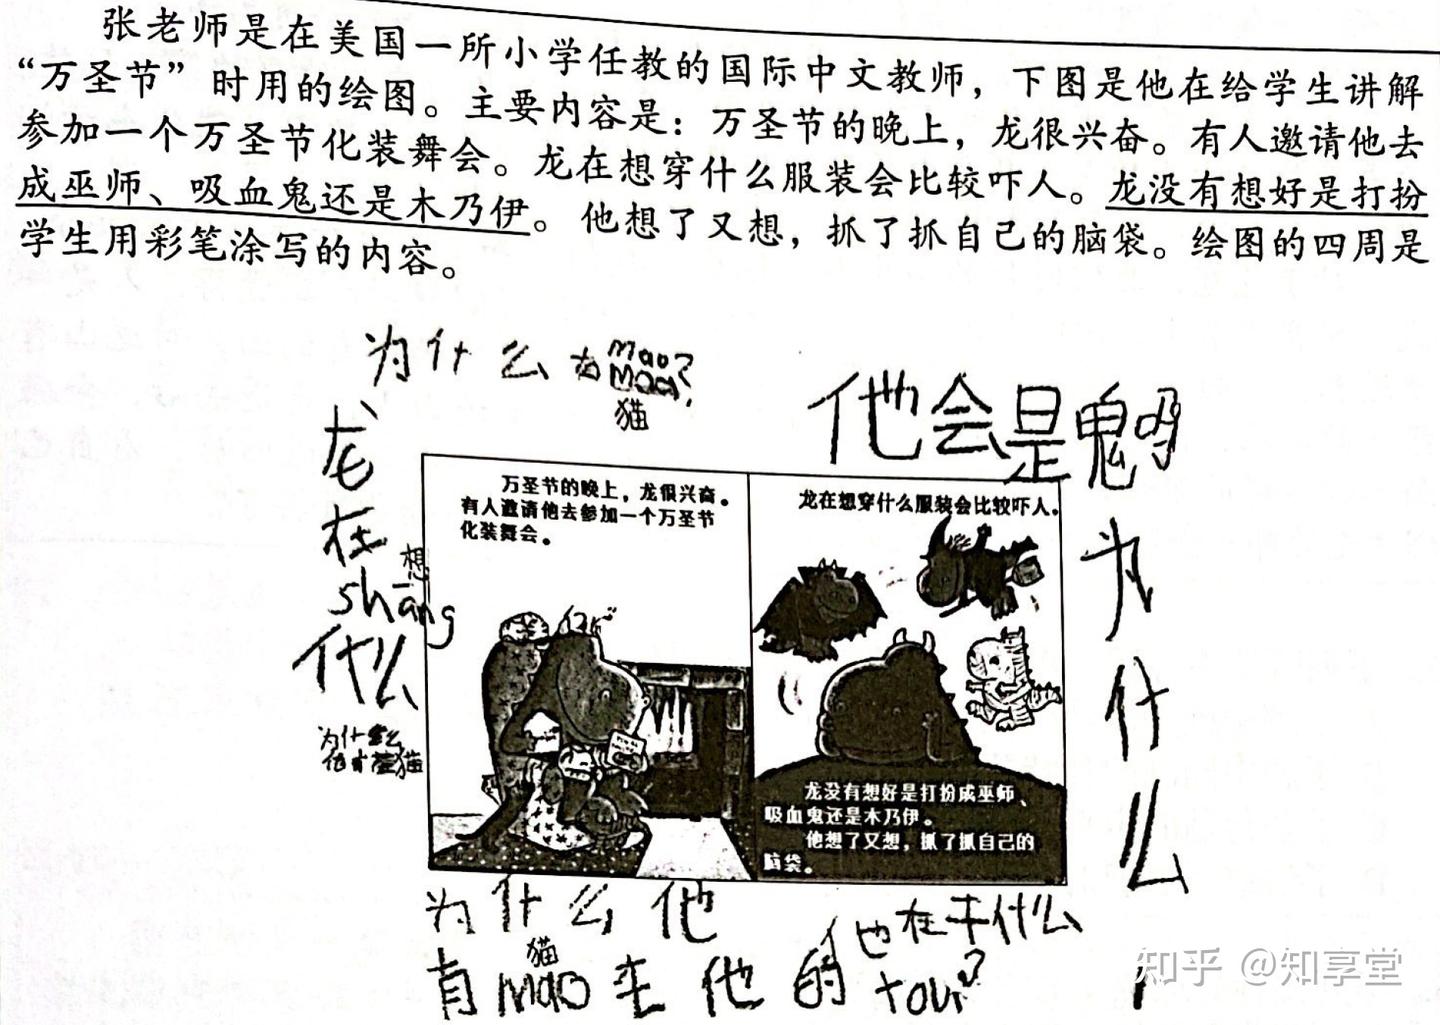 张老师是在美国一所小学任教的国际中文教师，下图是他在给学生讲解
“万圣节”时用的绘图。主要内容是：万圣节的晚上，龙很兴奋。有人邀请他去
参加一个万圣节化装舞会。龙在想穿什么服装会比较吓人。龙没有想好是打扮
成巫师、吸血鬼还是木乃伊。他想了又想，抓了抓自己的脑袋。绘图的四周是
学生用彩笔涂写的内容。
为什么
mao?
猫
他会是鬼吗
龙
在
想
shāng
什么
为什么
猫
万圣节的晚上，龙很兴奋。
有人邀请他去参加一个万圣节
化装舞会。
龙在想穿什么服装会比较吓人。
龙没有想好是打扮成巫师、
吸血鬼还是木乃伊。
他想了又想，抓了抓自己的
脑袋。
为
什
么
为什么他
有mao在他的tou?
猫
他在干什么
知乎 @知享堂